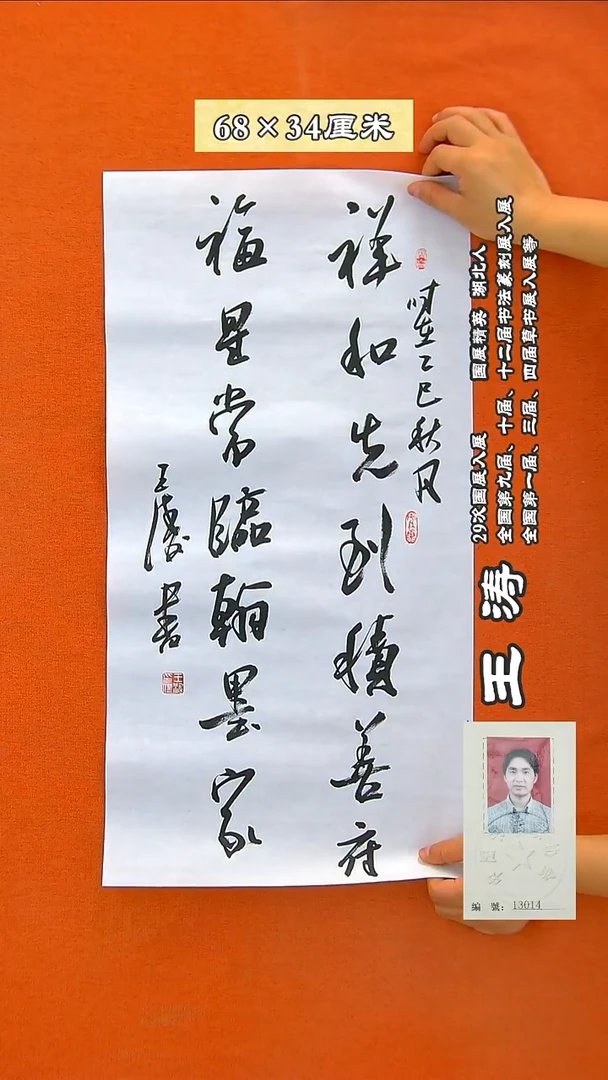 68×34厘米
祥和先到積善府
福星常臨翰墨家
時在乙巳秋月
王濤書
29次國展入展 國展精英 湖北人
全國第九届、十届、十二届书法篆刻展入展
全國第一届、三届、四届草书展入展等
王涛
編號：13014